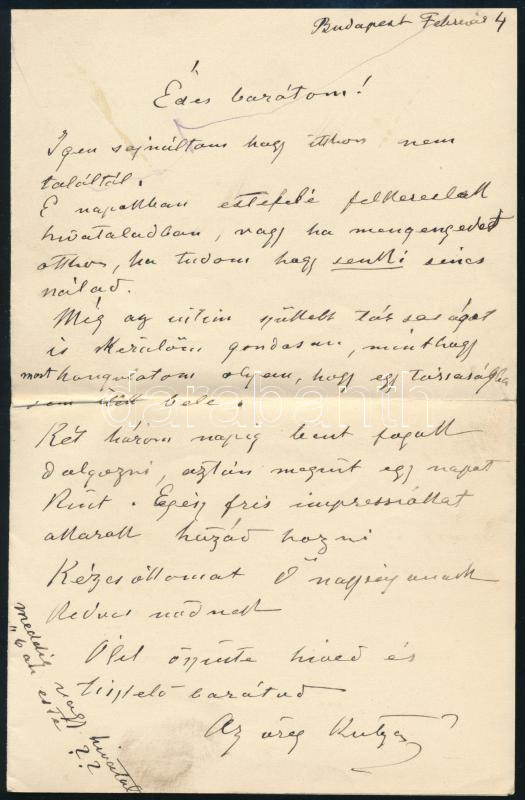 Budapest Február 4
Édes barátom!
Igen sajnáltam hogy itthon nem
találtál.
E napokban estefelé felkereslek
hivataladban, vagy ha megengeded
otthon, ha tudom hogy senki sincs
nálad.
Még az intim szűkebb társaságot
is kerülöm gondosan, minthogy
most hangulatom olyan, hogy egy társaságba
sem illek bele.
Két három napig bent fogok
dolgozni, aztán megint egy napot
kint. Egész fris impressiókat
akarok hozni
Kézcsókomat Ő nagyságának
kedves nődnek
Ölel őszinte hived és
tisztelő barátod
Az öreg
meddig vagy hivatal
6 ak este ??
darabanth